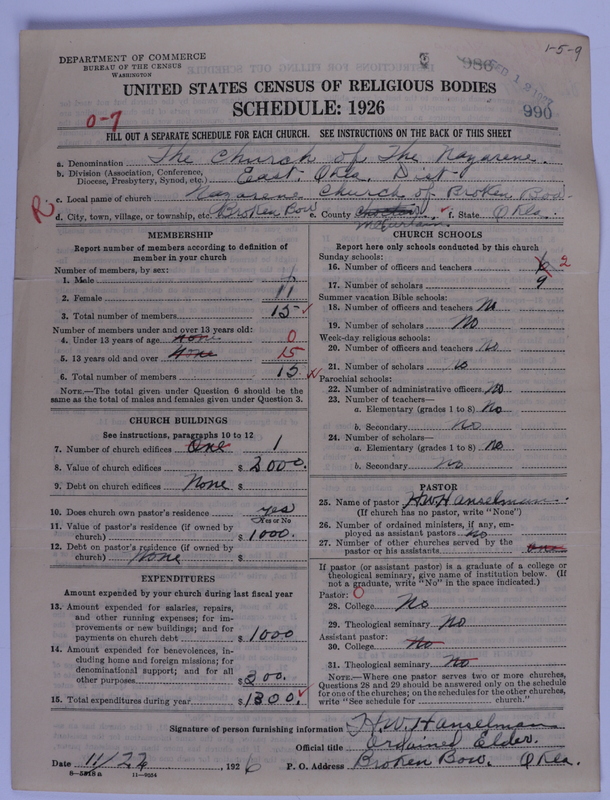 1-5-9
DEPARTMENT OF COMMERCE
BUREAU OF THE CENSUS
WASHINGTON
986
990
UNITED STATES CENSUS OF RELIGIOUS BODIES
SCHEDULE: 1926
0-7
FILL OUT A SEPARATE SCHEDULE FOR EACH CHURCH. SEE INSTRUCTIONS ON THE BACK OF THIS SHEET
a. Denomination The Church of The Nazarene.
b. Division (Association, Conference, East Okla. Dist
Diocese, Presbytery, Synod, etc.)
c. Local name of church Nazarene Church of Broken Bow
R.
d. City, town, village, or township, etc. Broken Bow e. County Choctaw McCurtain f. State Okla.
MEMBERSHIP
Report number of members according to definition of
member in your church
Number of members, by sex:
1. Male
2. Female 11
3. Total number of members 15
Number of members under and over 13 years old:
4. Under 13 years of age None 0
5. 13 years old and over None 15
6. Total number of members 15
NOTE.—The total given under Question 6 should be the
same as the total of males and females given under Question 3.
CHURCH BUILDINGS
See instructions, paragraphs 10 to 12
7. Number of church edifices One 1
8. Value of church edifices $ 2000.
9. Debt on church edifices None $
10. Does church own pastor's residence yes
Yes or No
11. Value of pastor's residence (if owned by
church) $ 1000.
12. Debt on pastor's residence (if owned by
church) None $
EXPENDITURES
Amount expended by your church during last fiscal year
13. Amount expended for salaries, repairs,
and other running expenses; for im-
provements or new buildings; and for
payments on church debt $ 1000
14. Amount expended for benevolences, in-
cluding home and foreign missions; for
denominational support; and for all
other purposes $ 300.
15. Total expenditures during year $ 1300.
CHURCH SCHOOLS
Report here only schools conducted by this church
Sunday schools:
16. Number of officers and teachers 6 2
17. Number of scholars 9
Summer vacation Bible schools:
18. Number of officers and teachers No
19. Number of scholars No
Week-day religious schools:
20. Number of officers and teachers No
21. Number of scholars No
Parochial schools:
22. Number of administrative officers No
23. Number of teachers—
a. Elementary (grades 1 to 8) No
b. Secondary No
24. Number of scholars—
a. Elementary (grades 1 to 8) No
b. Secondary No
PASTOR
25. Name of pastor H.W. Hanselman.
(If church has no pastor, write "None")
26. Number of ordained ministers, if any, em-
ployed as assistant pastors No
27. Number of other churches served by the
pastor or his assistants one
If pastor (or assistant pastor) is a graduate of a college or
theological seminary, give name of institution below. (If
not a graduate, write "No" in the space indicated.)
Pastor: 0
28. College No
29. Theological seminary No
Assistant pastor:
30. College No
31. Theological seminary No
NOTE.—Where one pastor serves two or more churches,
Questions 28 and 29 should be answered only on the schedule
for one of the churches; on the schedules for the other churches,
write "See schedule for church."
Signature of person furnishing information H.W. Hanselman
Official title Ordained Elder.
Date 11/22, 1926 P. O. Address Broken Bow. Okla.
8-5918 a 11-9204